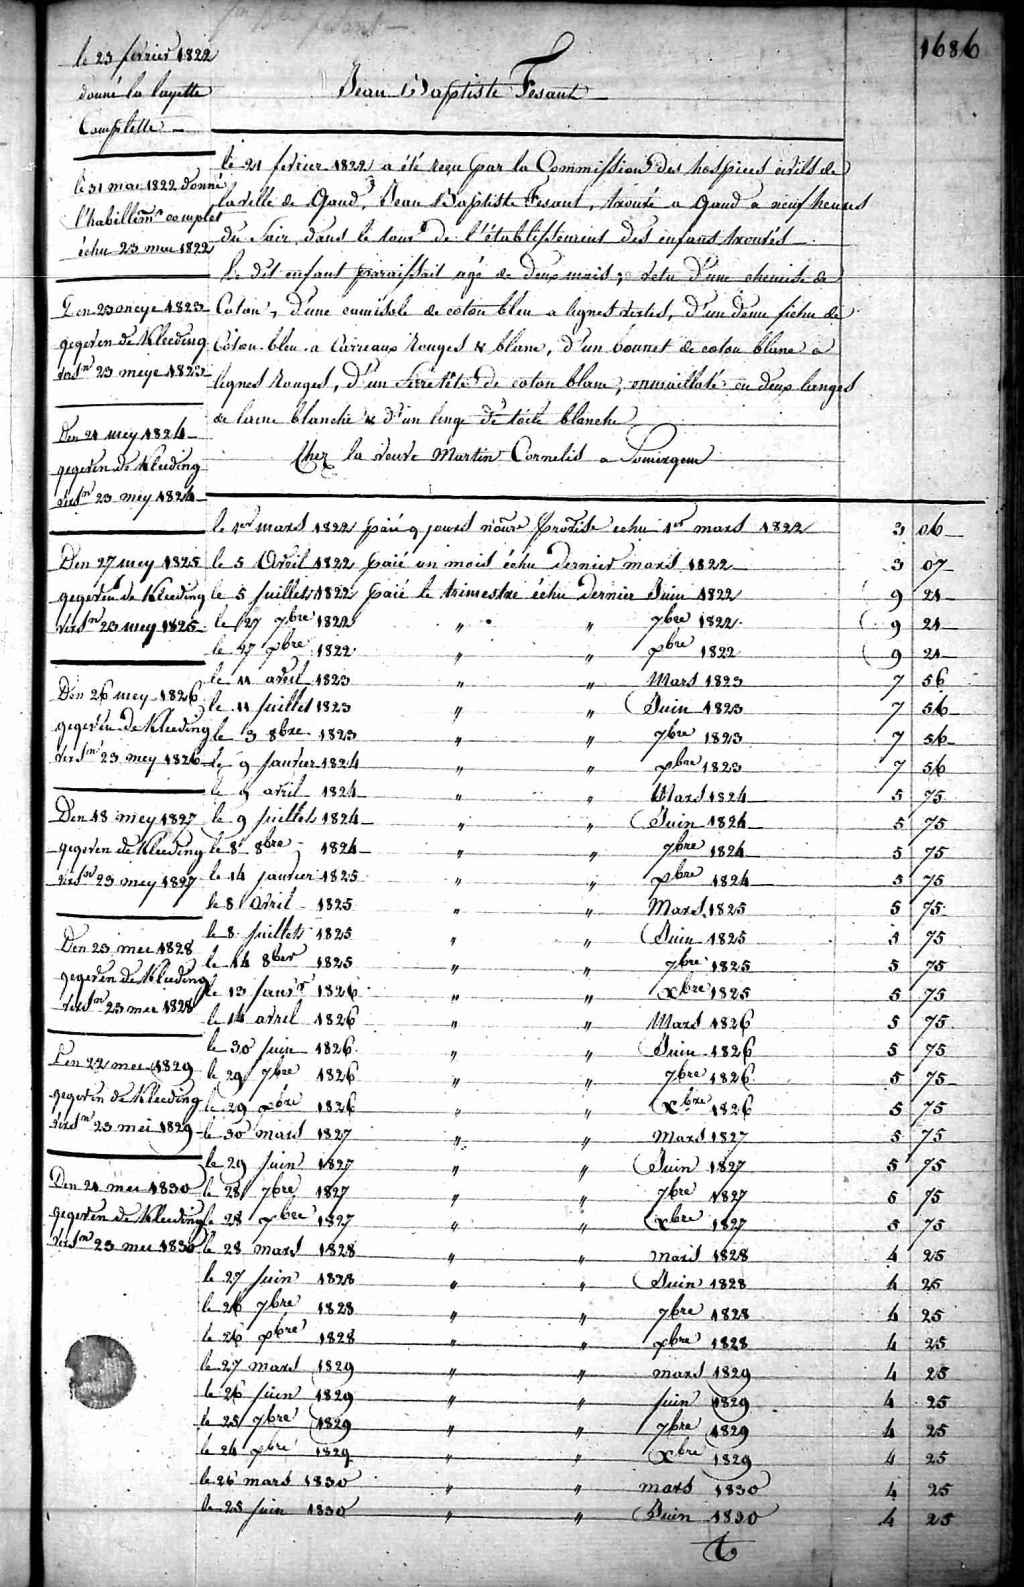 1686
Jean Baptiste Fesant
le 23 fevrier 1822
donné la layette
Complette
le 31 mai 1822 donné
l'habillemt complet
échu 23 mai 1822
Den 23 meye 1823
gegeven de Kleeding
versn 23 meye 1823
Den 21 mey 1824
gegeven de Kleeding
versn 23 mey 1824
Den 27 mey 1825
gegeven de Kleeding
versn 23 mey 1825
Den 26 mey 1826
gegeven de Kleeding
versn 23 mey 1826
Den 18 mey 1827
gegeven de Kleeding
versn 23 mey 1827
Den 23 mei 1828
gegeven de Kleeding
versn 23 mei 1828
Den 22 mei 1829
gegeven de Kleeding
versn 23 mei 1829
Den 21 mei 1830
gegeven de Kleeding
versn 23 mei 1830
le 21 fevrier 1822 a été reçu par la Commission des hospices civils de
la ville de Gand, Jean Baptiste Fesant, trouvé a Gand a neuf heures
du soir dans le tour de l'établissement des enfants trouvés
le dit enfant paraissait agé de deux mois, vetu d'une chemise de
Coton, d'une camisole de coton bleu a lignes vertes, d'un demi fichu de
Coton bleu a Carreaux Rouges & blanc, d'un bonnet de coton blanc a
lignes Rouges, d'un Serretête de coton blanc, enmailloté en deux langes
de laine blanche & d'un linge de toile blanche
Chez la veuve Martin Cornelis a Somergem
le 1er mars 1822 paié 9 jours nourre provise échu 1er mars 1822 3 06
le 5 Avril 1822 paié un mois échu dernier mars 1822 3 07
le 5 Juillet 1822 paié le trimestre échu dernier Juin 1822 9 21
le 27 7bre 1822 " " 7bre 1822 9 21
le 27 xbre 1822 " " xbre 1822 9 21
le 11 avril 1823 " " Mars 1823 7 56
le 11 Juillet 1823 " " Juin 1823 7 56
le 3 8bre 1823 " " 7bre 1823 7 56
le 9 Janvier 1824 " " xbre 1823 7 56
le 9 avril 1824 " " Mars 1824 5 75
le 9 Juillet 1824 " " Juin 1824 5 75
le 8 8bre 1824 " " 7bre 1824 5 75
le 14 janvier 1825 " " xbre 1824 5 75
le 8 Avril 1825 " " Mars 1825 5 75
le 8 Juillet 1825 " " Juin 1825 5 75
le 14 8ber 1825 " " 7bre 1825 5 75
le 13 Janvr 1826 " " xbre 1825 5 75
le 14 avril 1826 " " Mars 1826 5 75
le 30 Juin 1826 " " Juin 1826 5 75
le 29 7bre 1826 " " 7bre 1826 5 75
le 29 xbre 1826 " " Xbre 1826 5 75
le 30 mars 1827 " " Mars 1827 5 75
le 29 Juin 1827 " " Juin 1827 5 75
le 28 7bre 1827 " " 7bre 1827 5 75
le 28 xbre 1827 " " Xbre 1827 5 75
le 28 mars 1828 " " mars 1828 4 25
le 27 Juin 1828 " " Juin 1828 4 25
le 26 7bre 1828 " " 7bre 1828 4 25
le 26 xbre 1828 " " xbre 1828 4 25
le 27 mars 1829 " " mars 1829 4 25
le 26 Juin 1829 " " Juin 1829 4 25
le 25 7bre 1829 " " 7bre 1829 4 25
le 24 xbre 1829 " " Xbre 1829 4 25
le 26 mars 1830 " " mars 1830 4 25
le 25 Juin 1830 " " Juin 1830 4 25